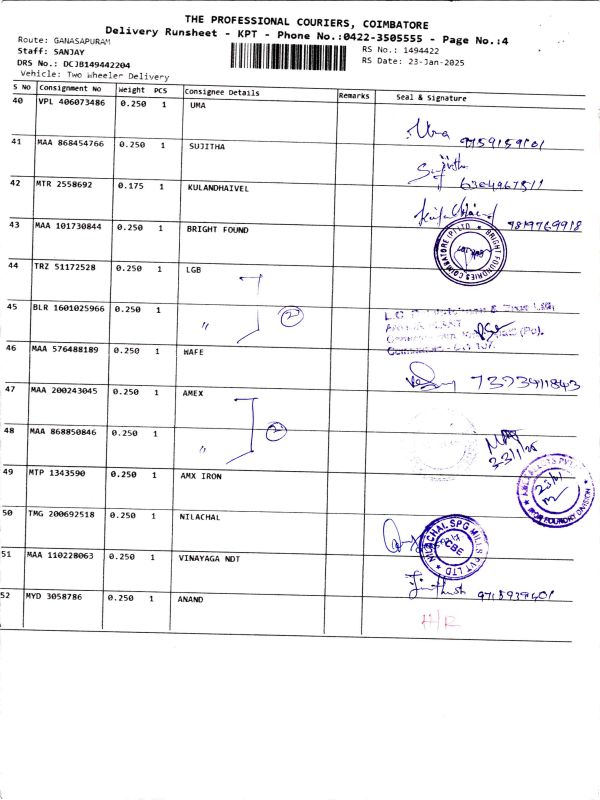 THE PROFESSIONAL COURIERS, COIMBATORE
Delivery Runsheet - KPT - Phone No.:0422-3505555 - Page No.:4
Route: GANASAPURAM
RS No.: 1494422
Staff: SANJAY
RS Date: 23-Jan-2025
DRS No.: DCJB149442204
Vehicle: Two Wheeler Delivery
S No Consignment No Weight PCS Consignee Details Remarks Seal & Signature
40 VPL 406073486 0.250 1 UMA
Uma
41 MAA 868454766 0.250 1 SUJITHA
42 MTR 2558692 0.175 1 KULANDHAIVEL
43 MAA 101730844 0.250 1 BRIGHT FOUND
BRIGHT FOUNDRIES COIMBATORE (P) LTD
44 TRZ 51172528 0.250 1 LGB
45 BLR 1601025966 0.250 1 〃
2
46 MAA 576488189 0.250 1 WAFE
7373911843
47 MAA 200243045 0.250 1 AMEX
48 MAA 868850846 0.250 1 〃
2
49 MTP 1343590 0.250 1 AMX IRON
IRON FOUNDRY DIVISION
50 TMG 200692518 0.250 1 NILACHAL
NILACHAL SPG MILLS PVT LTD
CBE
51 MAA 110228063 0.250 1 VINAYAGA NDT
52 MYD 3058786 0.250 1 ANAND
H/R